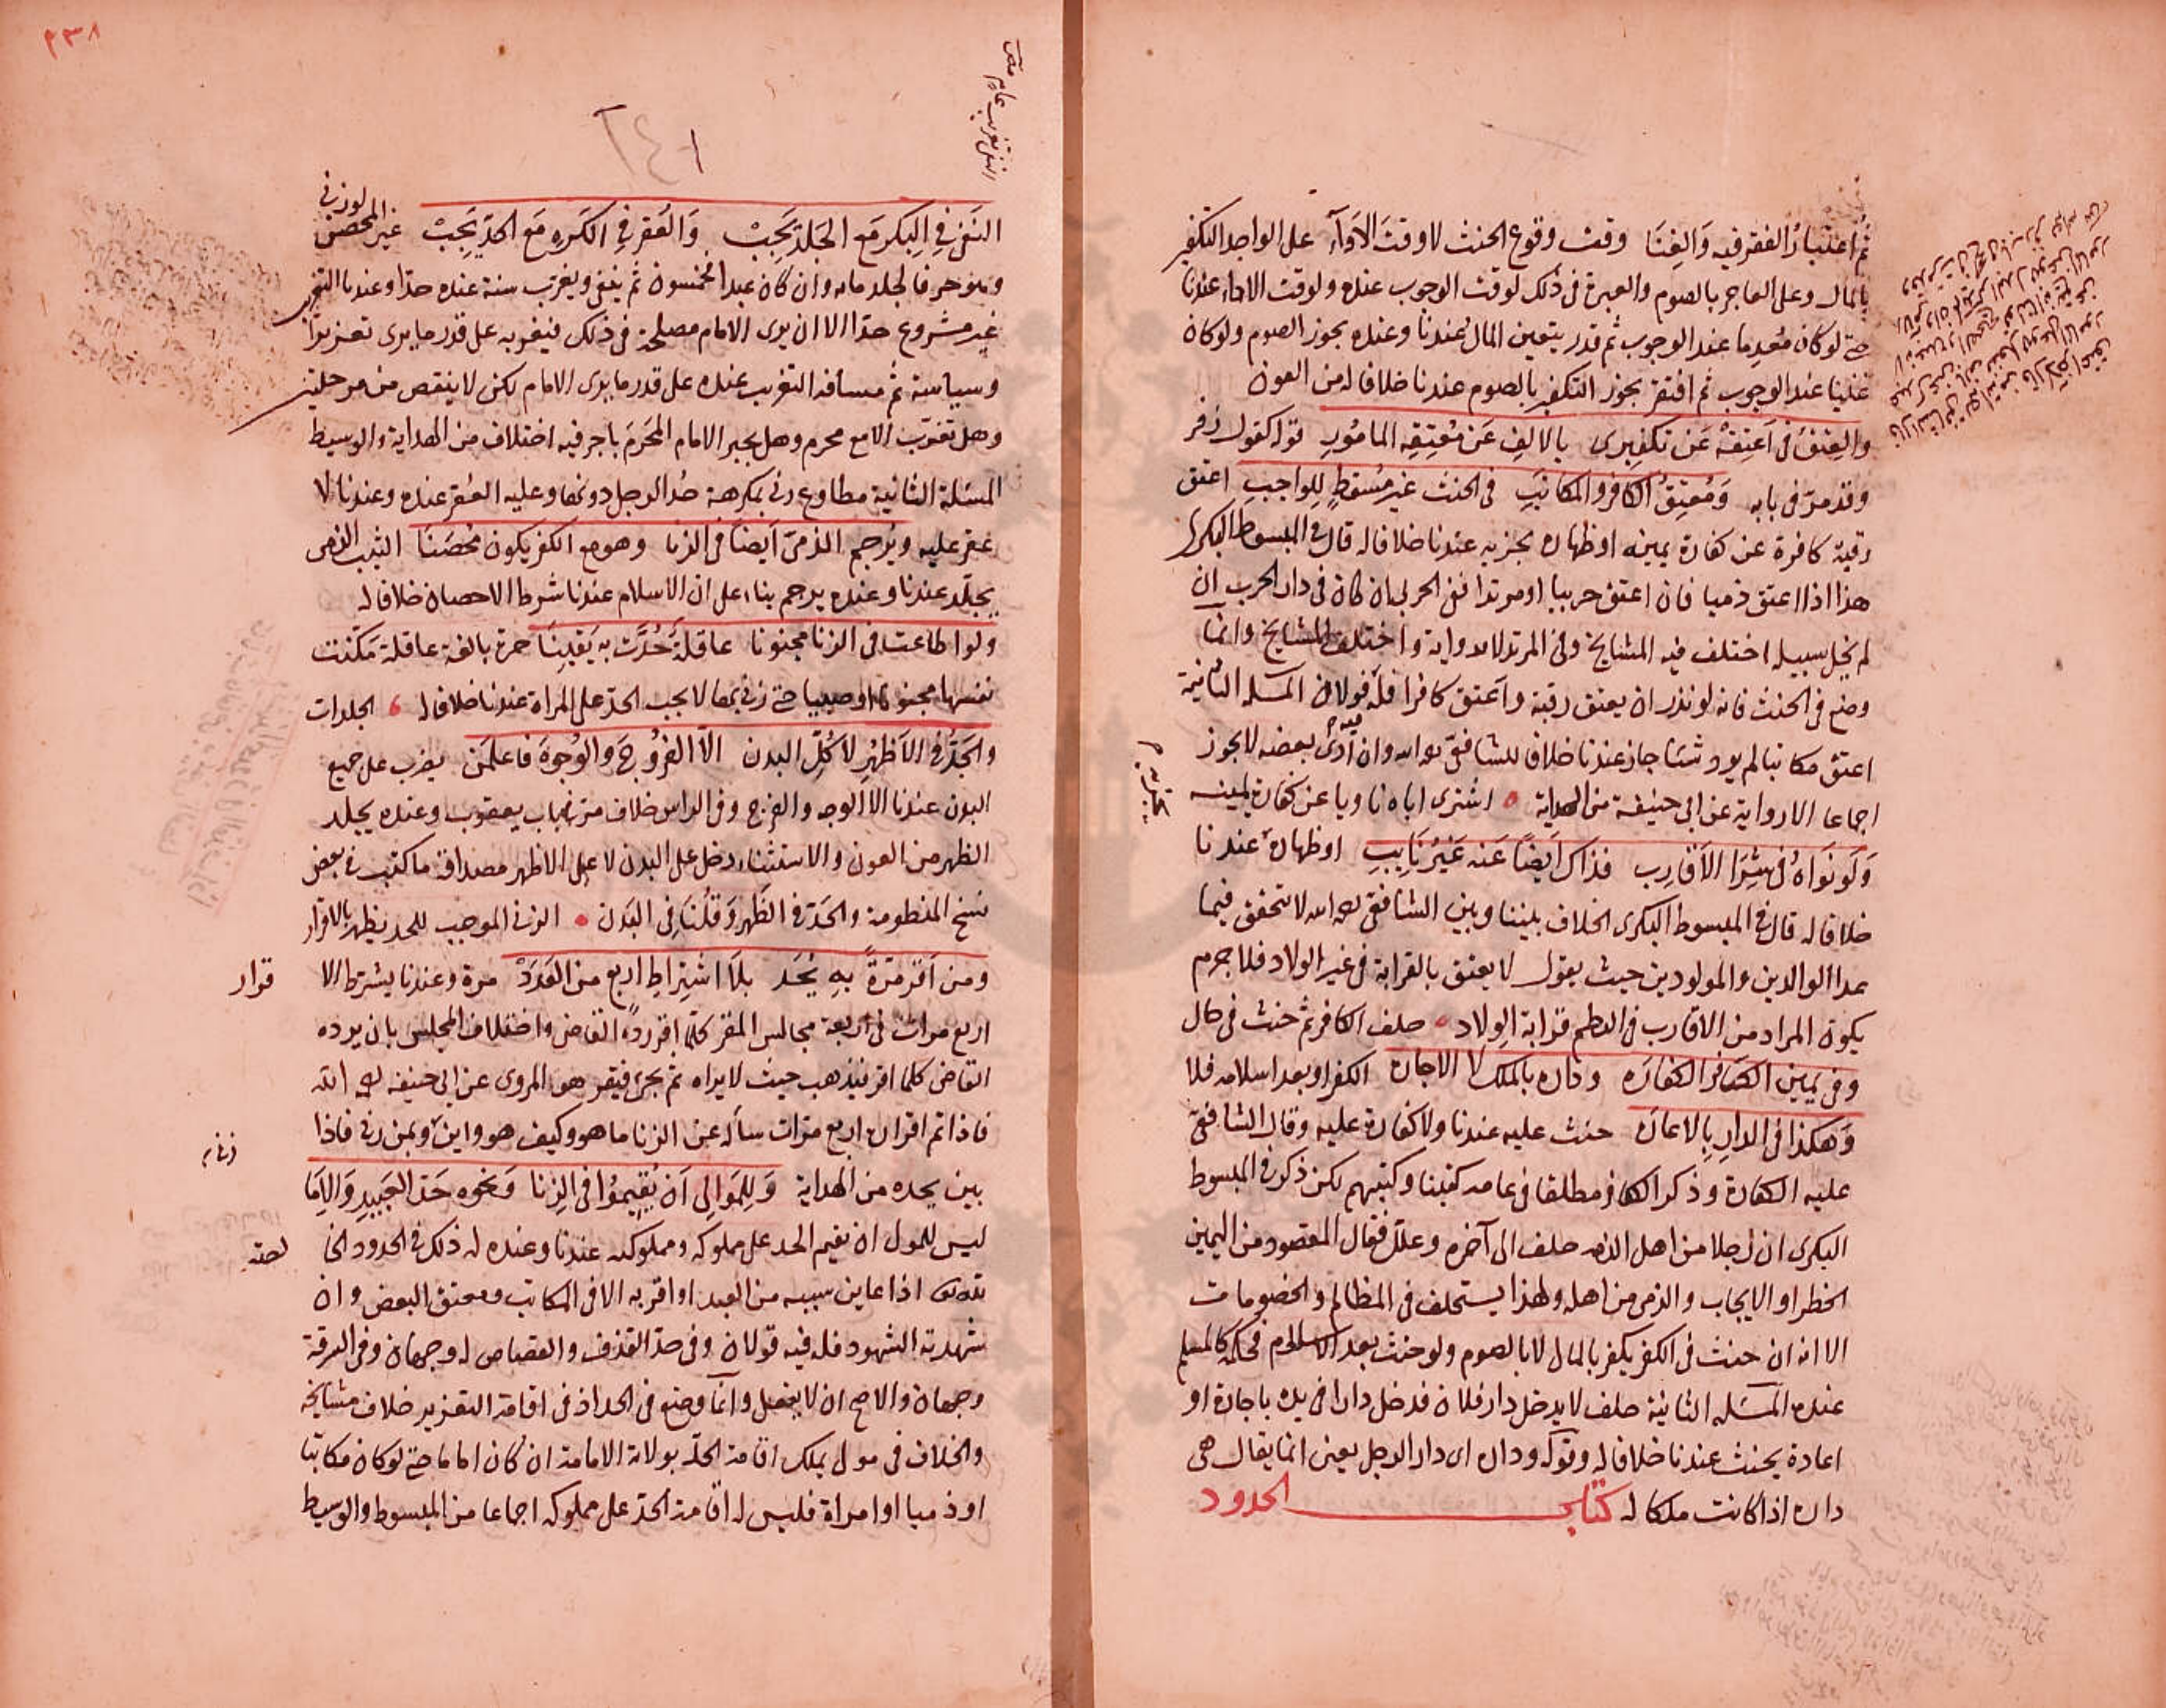 ثُمَّ اعتبارُ الفقر فيه وَالغِنَا وقت وقوع الحنث لا وقتَ الاَدآءِ على الواجد التكفير
بالمال وعلى العاجز بالصوم والعبرة في ذلك لوقت الوجوب عنده ولوقت الاداء عندنا
حتى لو كان مُعدِما عند الوجوب ثم قدر يتعين المال عندنا وعنده يجوز الصوم ولو كان
غنيا عند الوجوب ثم افتقر يجوز التكفير بالصوم عندنا خلافا له من العون
والعِتقُ في اَعتِقهُ عَن تكفيرى بالالفِ عَن مُعتِقِه المامُورِ قوله كقول زفر
وقد مرّ في بابه وَمُعتِقُ الكافر والمكاتَبِ في الحنث غير مُسقطٍ لِلواجبِ اعتق
رقبة كافرة عن كفارة يمينه او ظهاره يجزيه عندنا خلافا له قال في المبسوط البكرى
هذا اذا اعتق ذميا فان اعتق حربيا او مرتدا ففي الحربي ان كان في دار الحرب ان
لم يخل سبيله اختلف فيه المشايخ وفي المرتد لا رواية واختلف المشايخ وانما
وضع في الحنث فانه لو نذر ان يعتق رقبة واعتق كافرا فله قولان المسئلة الثانية
اعتق مكاتبا لم يود شيئا جاز عندنا خلافا للشافعي وان ادى بعضه لا يجوز
اجماعا الا رواية عن ابي حنيفة من الهداية اشترى اباه ناويا عن كفارة يمينه
وَلَو نَوَاهُ في شِرَا الاَقارِبِ فذاك اَيضاً عَنه غَيرُ نَايبِ او ظهاره عندنا
خلافا له قال في المبسوط البكرى الخلاف بيننا وبين الشافعي لا تتحقق فيما
عدا الوالدين والمولودين حيث يقول لا يعتق بالقرابة في غير الولاد فلا جرم
يكون المراد من الاقارب في النظم قرابة الولاد حلف الكافر ثم حنث في حال
وفي يمين الكافر الكفاره وداره بالملك لا الاجاره الكفر او بعد اسلامه فلا
وَهكذا في الدارِ بِالاعاره حنث عليه عندنا ولا كفارة عليه وقال الشافعي
عليه الكفارة وذكر الكافر مطلقا في عامة كتبنا وكتبهم لكن ذكر في المبسوط
البكرى ان رجلا من اهل الذمة حلف الى آخره وعلل فقال المقصود من اليمين
الحظر او الايجاب والذمي من اهله ولهذا يستحلف في المظالم والخصومات
الا انه ان حنث في الكفر يكفر بالمال لا بالصوم ولو حنث بعد الاسلام فحكمه كالمسلم
عنده المسئلة الثانية حلف لا يدخل دار فلان فدخل دارا في يده باجارة او
اعارة يحنث عندنا خلافا له وقوله وداره اى دار الرجل يعنى انما يقال هى
داره اذا كانت ملكا له كتاب الحدود
٢٣٨
٢٤١
النَفىُ في البِكرِ مَع الجَلدِ يَجِبْ وَالعُقر في الكَره مَع الحدّ يَجِبْ غير المحصن لو زنى
وهو حر فالجلد ماية وان كان عبدا فخمسون ثم ينفى ويغرّب سنة عنده حدّا وعندنا التغريب
غير مشروع حدّا الا ان يرى الامام مصلحة في ذلك فيغربه على قدر ما يرى تعزيرًا
وسياسة ثم مسافة التغريب عنده على قدر ما يرى الامام لكن لا ينقص من مرحلتين
وهل تغرّب الا مع محرم وهل يجبر الامام المَحرَمَ باجر فيه اختلاف من الهداية والوسيط
المسئلة الثانية مطاوع زنى بمكرهة حُد الرجل دونها وعليه العُقر عنده وعندنا لا
عقر عليه ويُرجم الذمىّ اَيضاً في الزنا وهو مع الكفر يكون مُحصَنًا الثيب الذمى
يجلد عندنا وعنده يرجم بناء على ان الاسلام عندنا شرط الاحصان خلافا له
ولو اطاعت في الزنا مجنونا عاقلةً حُدَّت به يَقينًا حرة بالغة عاقلة مكّنت
نفسها مجنونا او صبيا حتى زنى بها لا يجب الحدّ على المراة عندنا خلافا له الجلدات
والحَدُّ في الاَظهُرِ لا كُلِّ البدن الاّ الفرُوجَ والوُجوهَ فاعلَمَن يضرب على جميع
البدن عندنا الا الوجه والفرج وفي الراس خلاف مرّ في باب يعقوب وعنده يجلد
الظهر من العون والاستثناء دخل على البدن لا على الاظهر مصداقه ما كتب في بعض
نسخ المنظومة والحَدّ في الظَهر وَقُلنَا في البَدَن الزنى الموجب للحد يظهر بالاقرار
ومن اَقرّ مَرّةً بِهِ يُحَد بلاَ اشتِراطِ اربع من العَدَدْ مرة وعندنا يشترط الا
قرار
اربع مرات في اربعة مجالس المقر كلّما اقر ردّه القاضى واختلاف المجلس بان يرده
القاضى كلما اقر فيذهب حيث لا يراه ثم يجىء فيقر هو المروى عن ابي حنيفة رحمه الله
فاذا تم اقراره اربع مرات سأله عن الزنا ما هو وكيف هو واين وبمن زنى فاذا
بين يحده من الهداية وَلِلمَوالى اَن يُقيمُوا في الزِنا وَنحوه حَدّ العَبيدِ وَالاِمَا
ليس للمولى ان يقيم الحد على مملوكه ومملوكته عندنا وعنده له ذلك في الحدود الخا
لصة
لله تعالى اذا عاين سببه من العبد او اقر به الا في المكاتب ومعتق البعض وان
شهد به الشهود فله فيه قولان وفي حدّ القذف والقصاص له وجهان وفي السرقة
وجهان والاصح ان لا يفعل وانما وضع في الحد اذ في اقامة التعزير خلاف مشايخه
والخلاف في مولى يملك اقامة الحدّ بولاية الامامة ان كان اماما حتى لو كان مكاتبا
او ذميا او امراة فليس له اقامة الحدّ على مملوكه اجماعا من المبسوط والوسيط